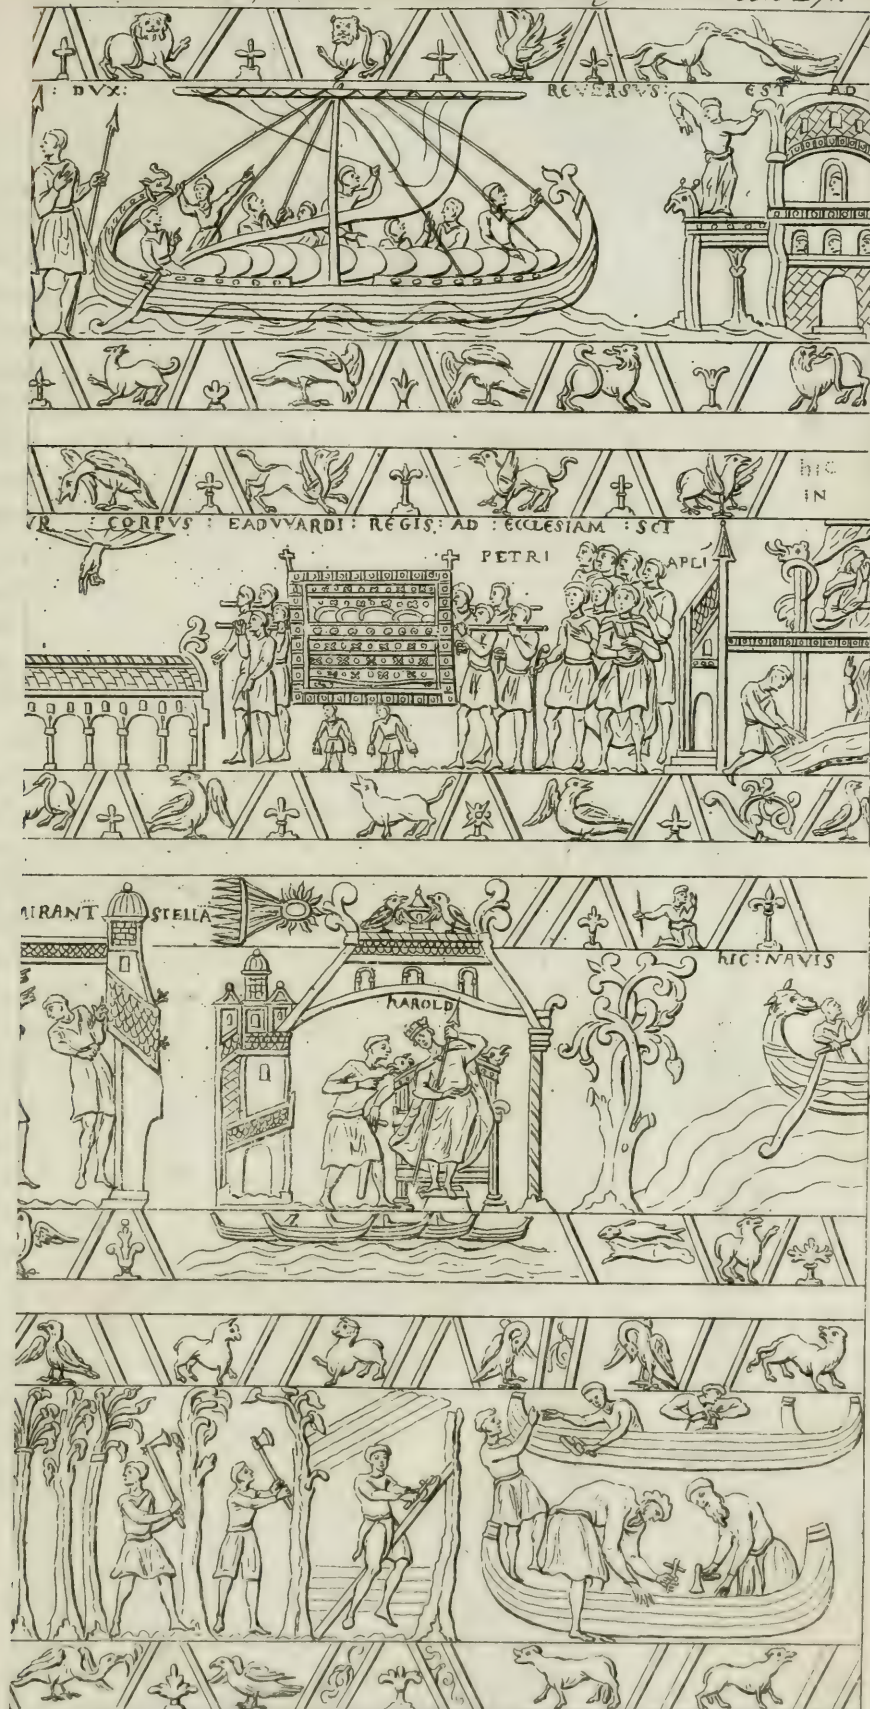 : DVX: REVERSVS: EST AD
hIC
IN
VR : CORPVS : EADVVARDI : REGIS: AD : ECCLESIAM : SCI
PETRI APLI
MIRANT STELLA
hAROLD
hIC : NAVIS